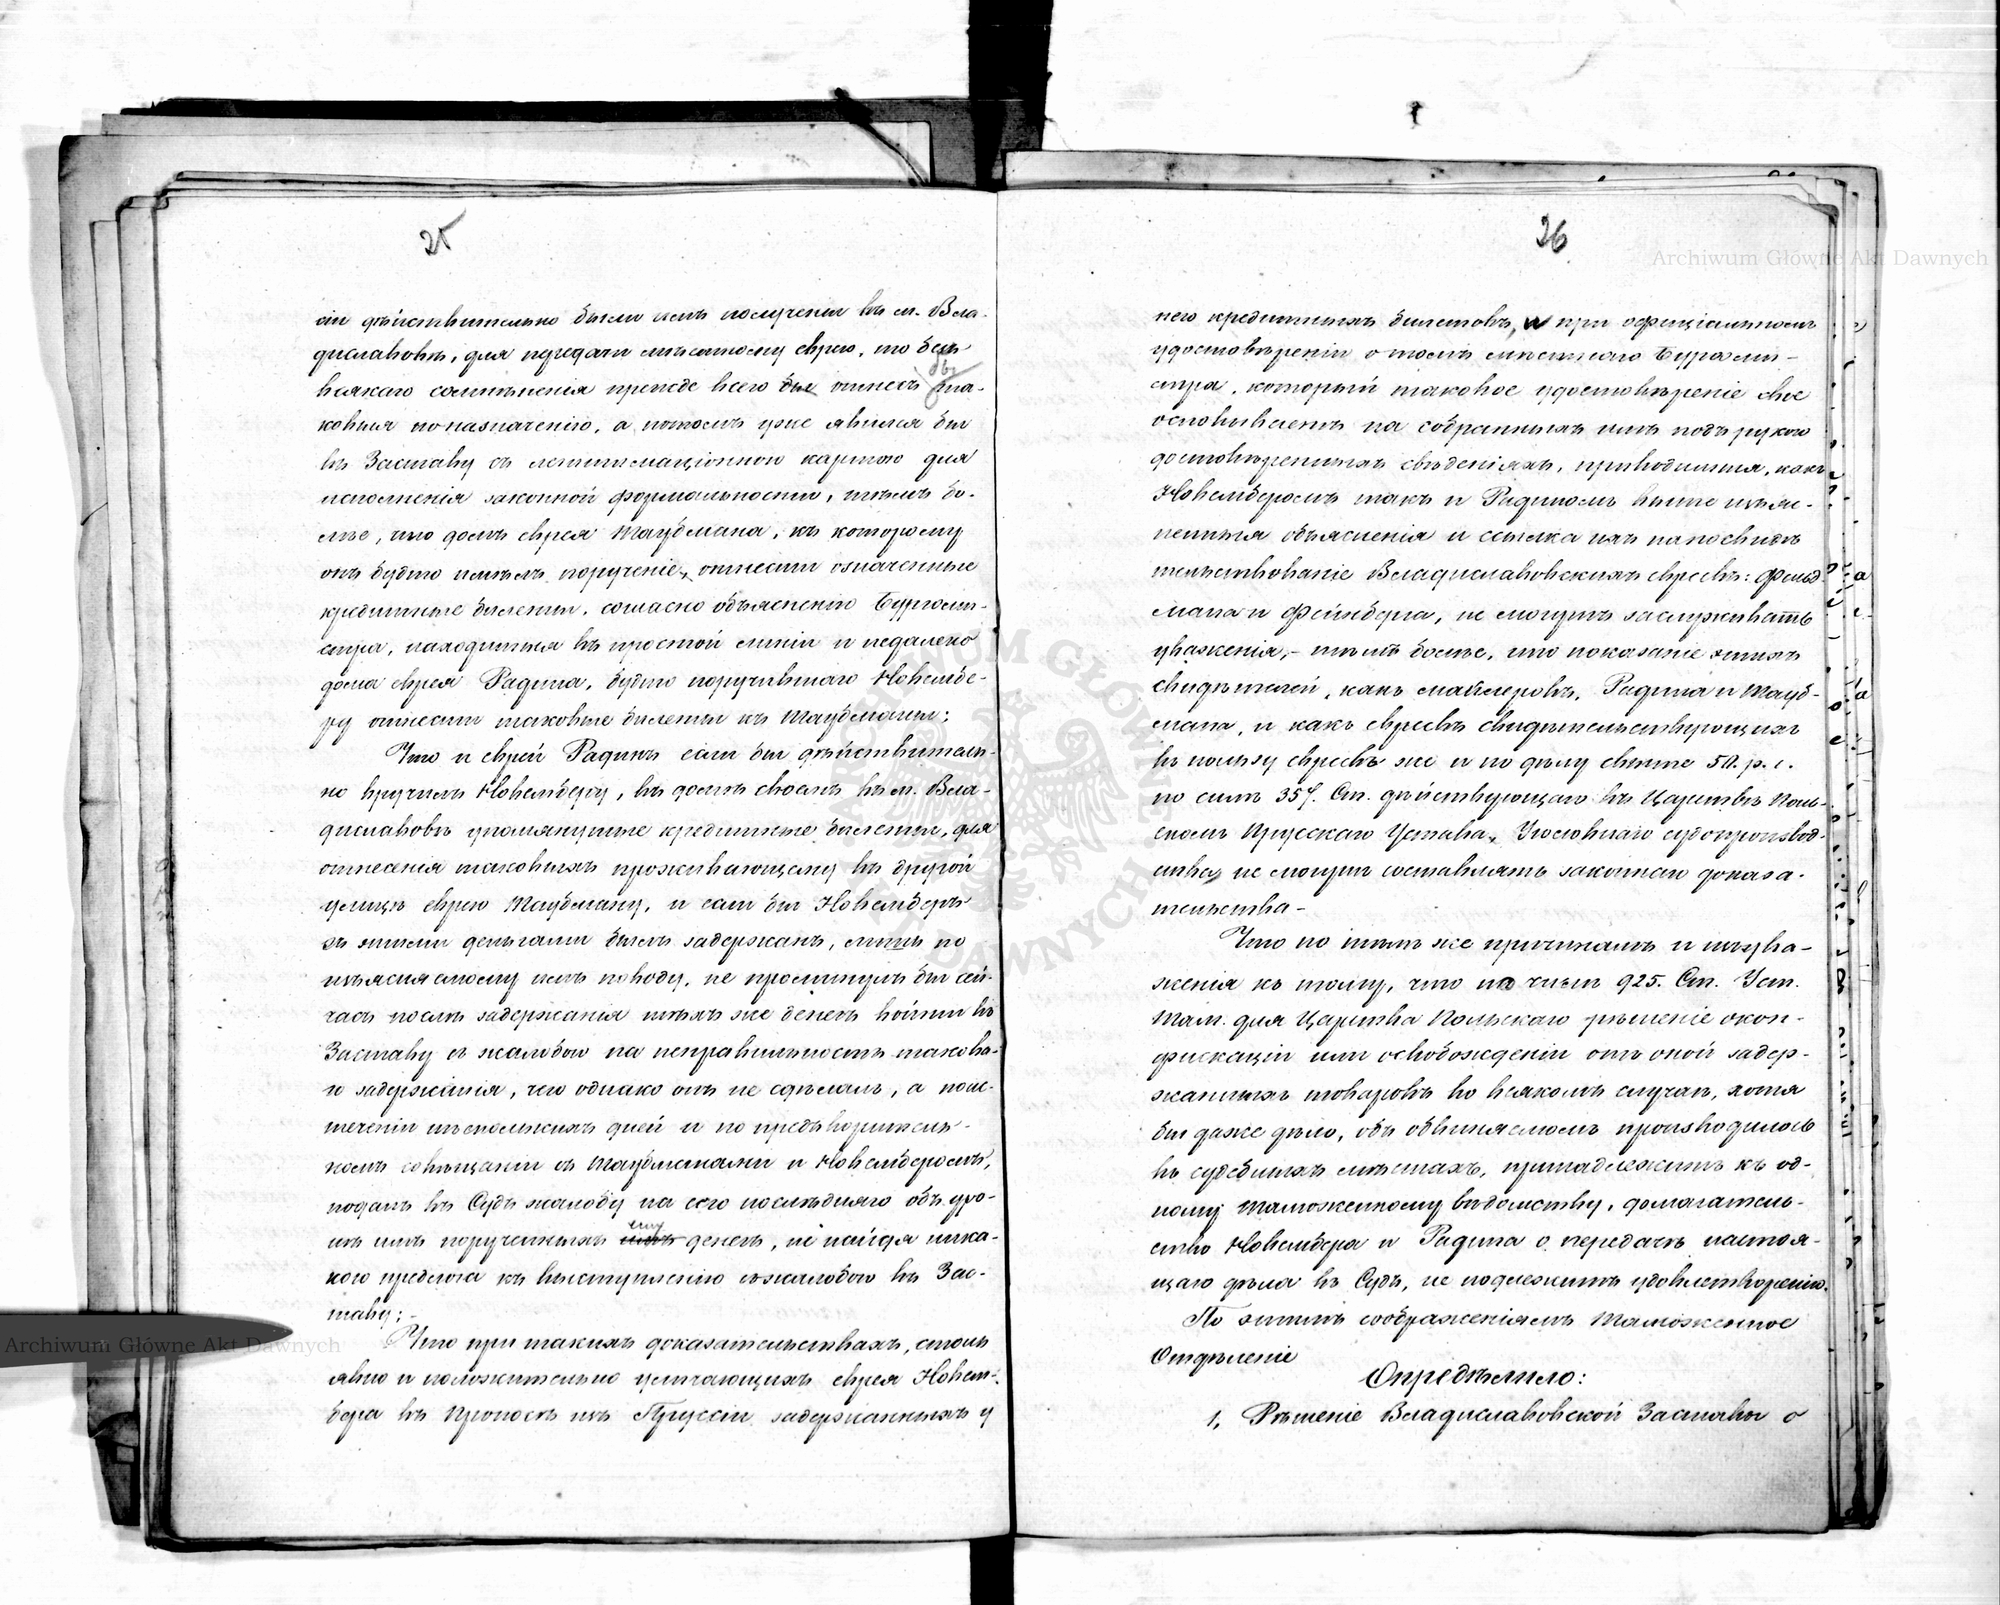 25
сіи дѣйствительно были имъ получены въ м. Вла-
диславовѣ, для передачи мѣстному еврею, то безъ
всякаго сомнѣнія прежде всего отнесъ бы та-
ковыя по назначенію, а потомъ уже явился бы
въ Заставу съ легитимаціонною картою для
исполненія законной формальности, тѣмъ бо-
лѣе, что домъ еврея Таубмана, къ которому
онъ будто имѣлъ порученіе, отнести означенные
кредитные билеты, согласно объясненію Бургоми-
стра, находится въ простой линіи и недалеко
дома еврея Радина, будто поручившаго Новембе-
ру отнести таковые билеты къ Таубману;
Что и еврей Радинъ если бы дѣйствитель-
но вручилъ Новемберу, въ домѣ своемъ въ м. Вла-
диславовѣ упомянутые кредитные билеты, для
отнесенія таковыхъ проживающему въ другой
улицѣ еврею Таубману, и если бы Новемберъ
съ этими деньгами былъ задержанъ, лишь по
изъясняемому имъ поводу, не проминулъ бы сей-
часъ послѣ задержанія тѣхъ же денегъ войти въ
Заставу съ жалобою на неправильность таково-
го задержанія, чего однако онъ не сдѣлалъ, а по ис-
теченіи нѣсколькихъ дней и по предварительн-
номъ совѣщаніи съ Таубманами и Новемберомъ,
подалъ въ Судъ жалобу на сего послѣдняго объ уро-
нѣ имъ порученныхъ ему денегъ, не найдя ника-
кого предлога къ выступленію съ жалобою въ Зас-
таву;
Что при такихъ доказательствахъ, столь
явно и положительно уличающихъ еврея Новем-
бера въ проносѣ изъ Пруссіи задержанныхъ у
26
него кредитныхъ билетовъ, и при офиціальномъ
удостовѣреніи о томъ мѣстнаго Бургоми-
стра, который таковое удостовѣреніе свое
основываетъ на собранныхъ имъ подъ рукою
достовѣрныхъ свѣденіяхъ, приводимыя, какъ
Новемберомъ такъ и Радиномъ выше изъяс-
ненныя объясненія и ссылка ихъ на посвидѣ-
тельствованіе Владиславовскихъ евреевъ: Фельд-
мана и Фейнберга, не могутъ заслуживать
уваженія, - тѣмъ болѣе, что показаніе этихъ
свидѣтелей, какъ маклеровъ, Радина и Тауб-
мана, и какъ евреевъ свидѣтельствующихъ
въ пользу евреевъ же и по дѣлу свыше 50. р. с.
по силѣ 357. Ст. дѣйствующаго въ Царствѣ Поль-
скомъ Прусскаго Устава, Уголовнаго судопроизвод-
ства, не могутъ составлять законнаго доказа-
тельства -
Что по тѣмъ же причинамъ и изъ ува-
женія къ тому, что по силѣ 925. Ст. Уст.
Там. для Царства Польскаго рѣшеніе о кон-
фискаціи или освобожденіи отъ оной задер-
жанныхъ товаровъ во всякомъ случаѣ, хотя
бы даже дѣло, объ обвиняемомъ производилось
въ судебныхъ мѣстахъ, принадлежитъ къ од-
ному таможенному вѣдомству, домагатель-
ство Новембера и Радина о передачѣ настоя-
щаго дѣла въ Судъ, не подлежитъ удовлетворенію.
По этимъ соображеніямъ Таможенное
Отдѣленіе
Опредѣлило:
1, Рѣшеніе Владиславовской Заставы о
Archiwum Główne Akt Dawnych
Archiwum Główne Akt Dawnych